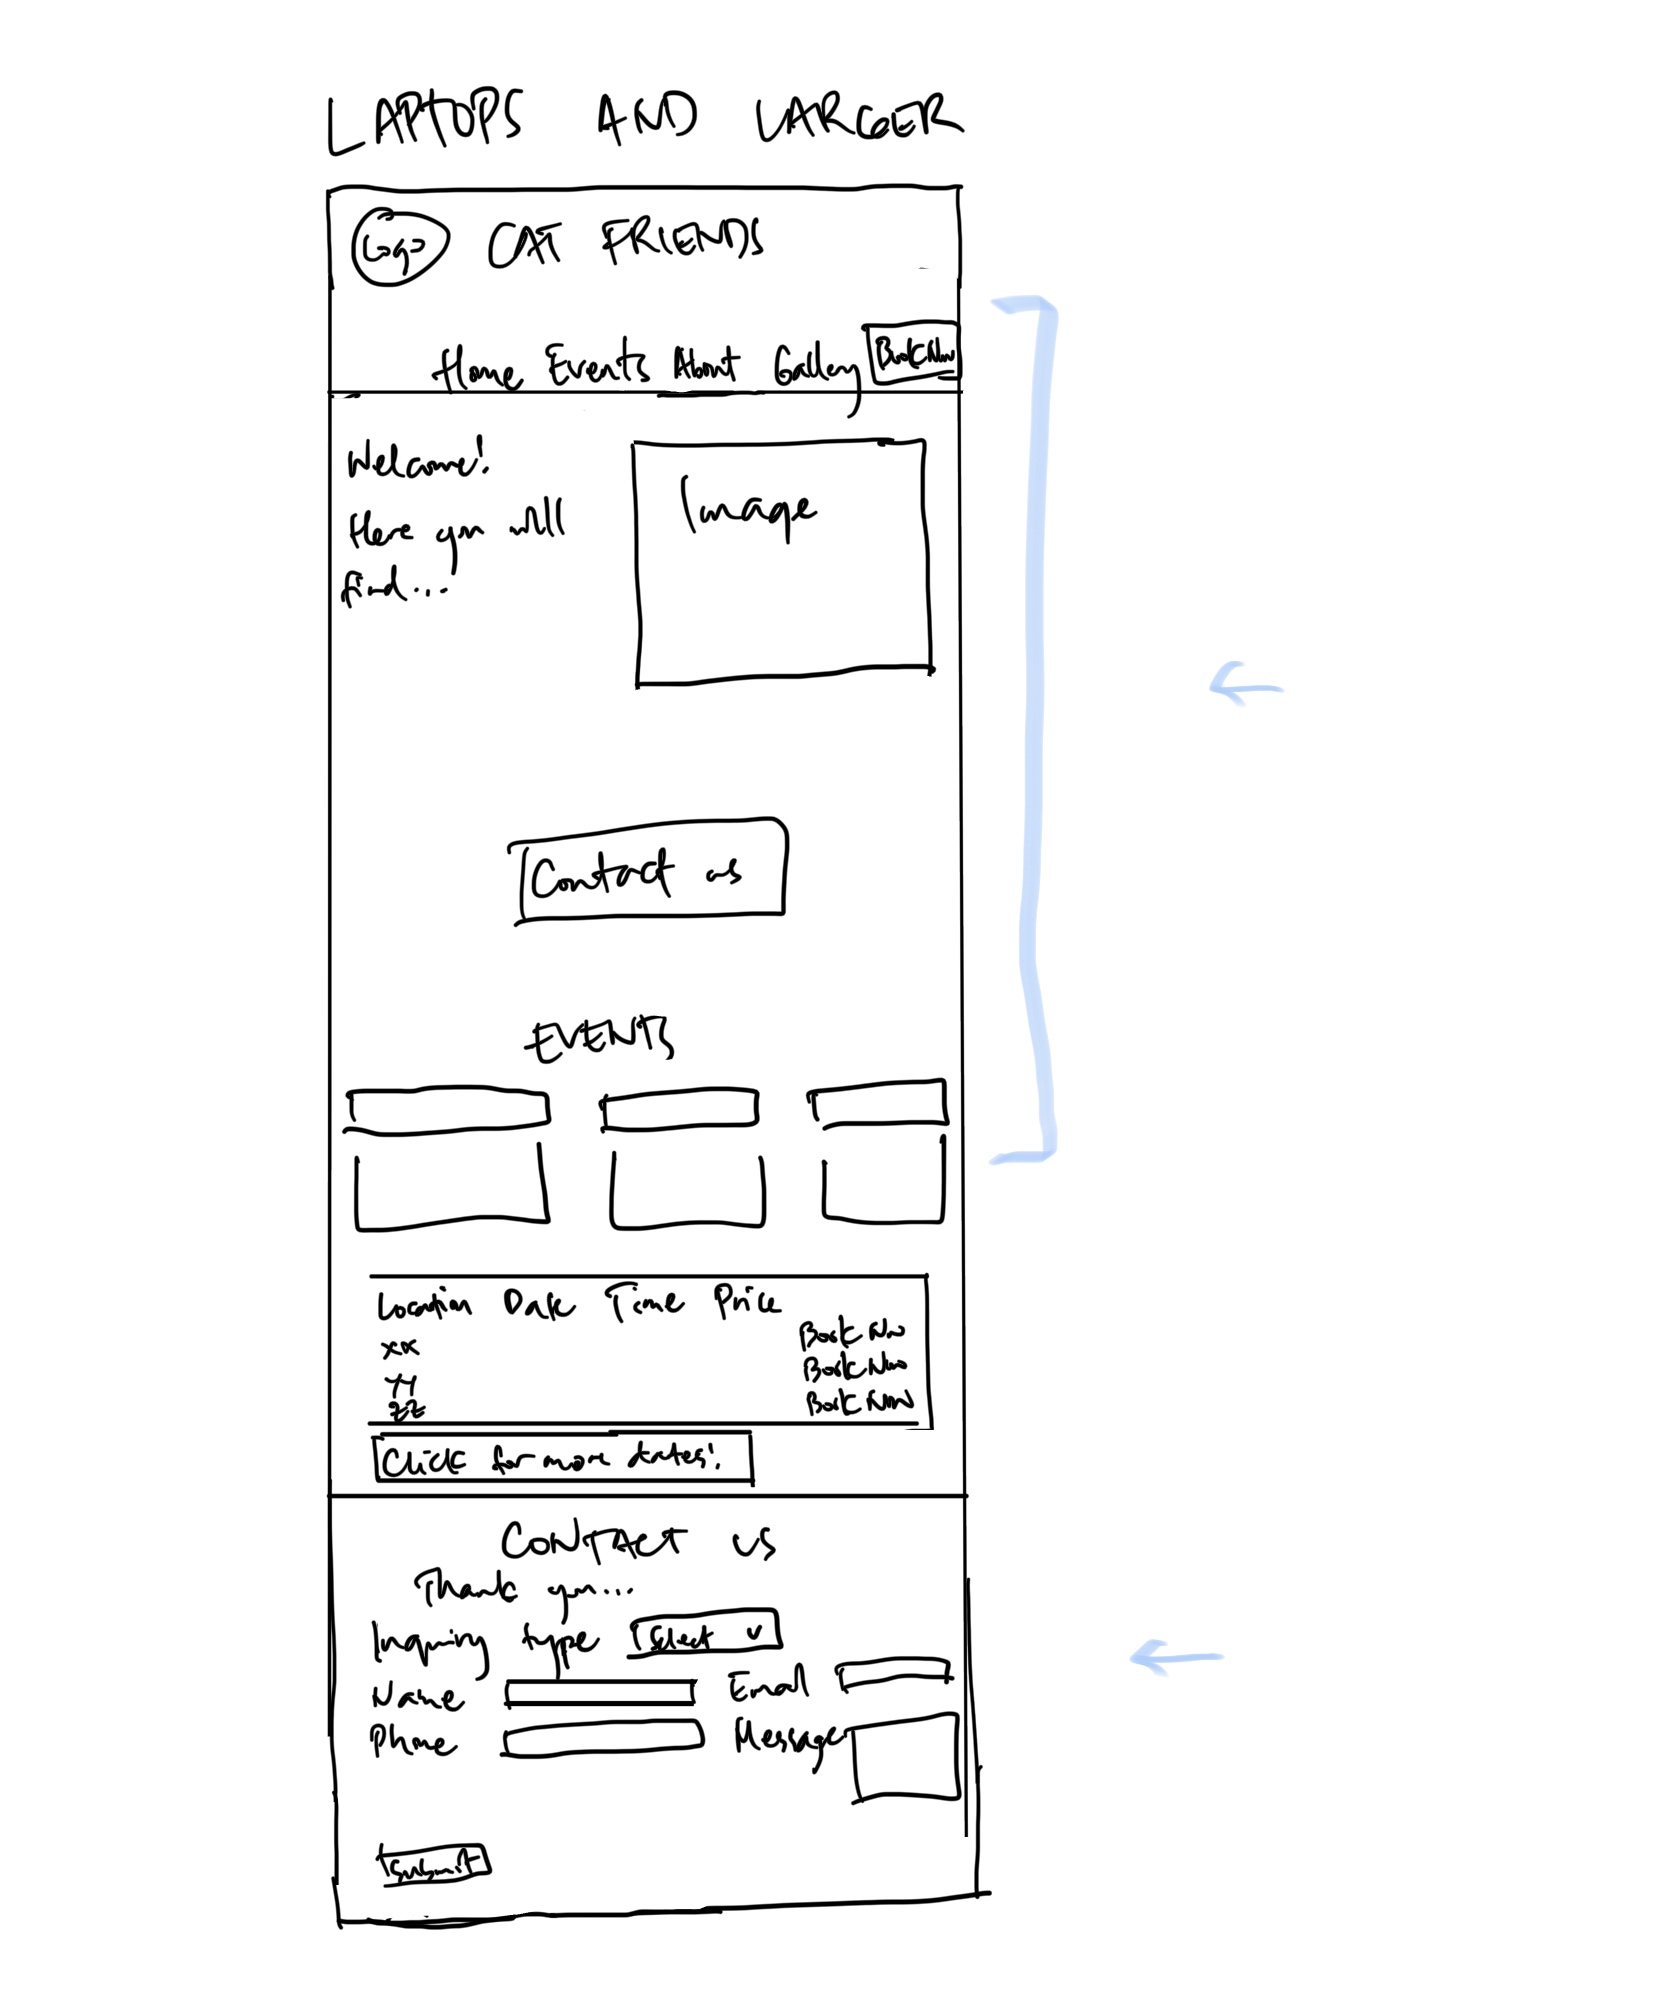 LAPTOPS AND LARGER
Logo CAT FRIENDS
Home Events About Gallery Book Now
Welcome!
Here you will
find...
Image
Contact us
EVENTS
Location Date Time Price
Book Now
xx
Book Now
yy
Book Now
zz
Click for more dates!
CONTACT US
Thank you...
Inquiry type Select v
Name Email
Phone Message
Submit